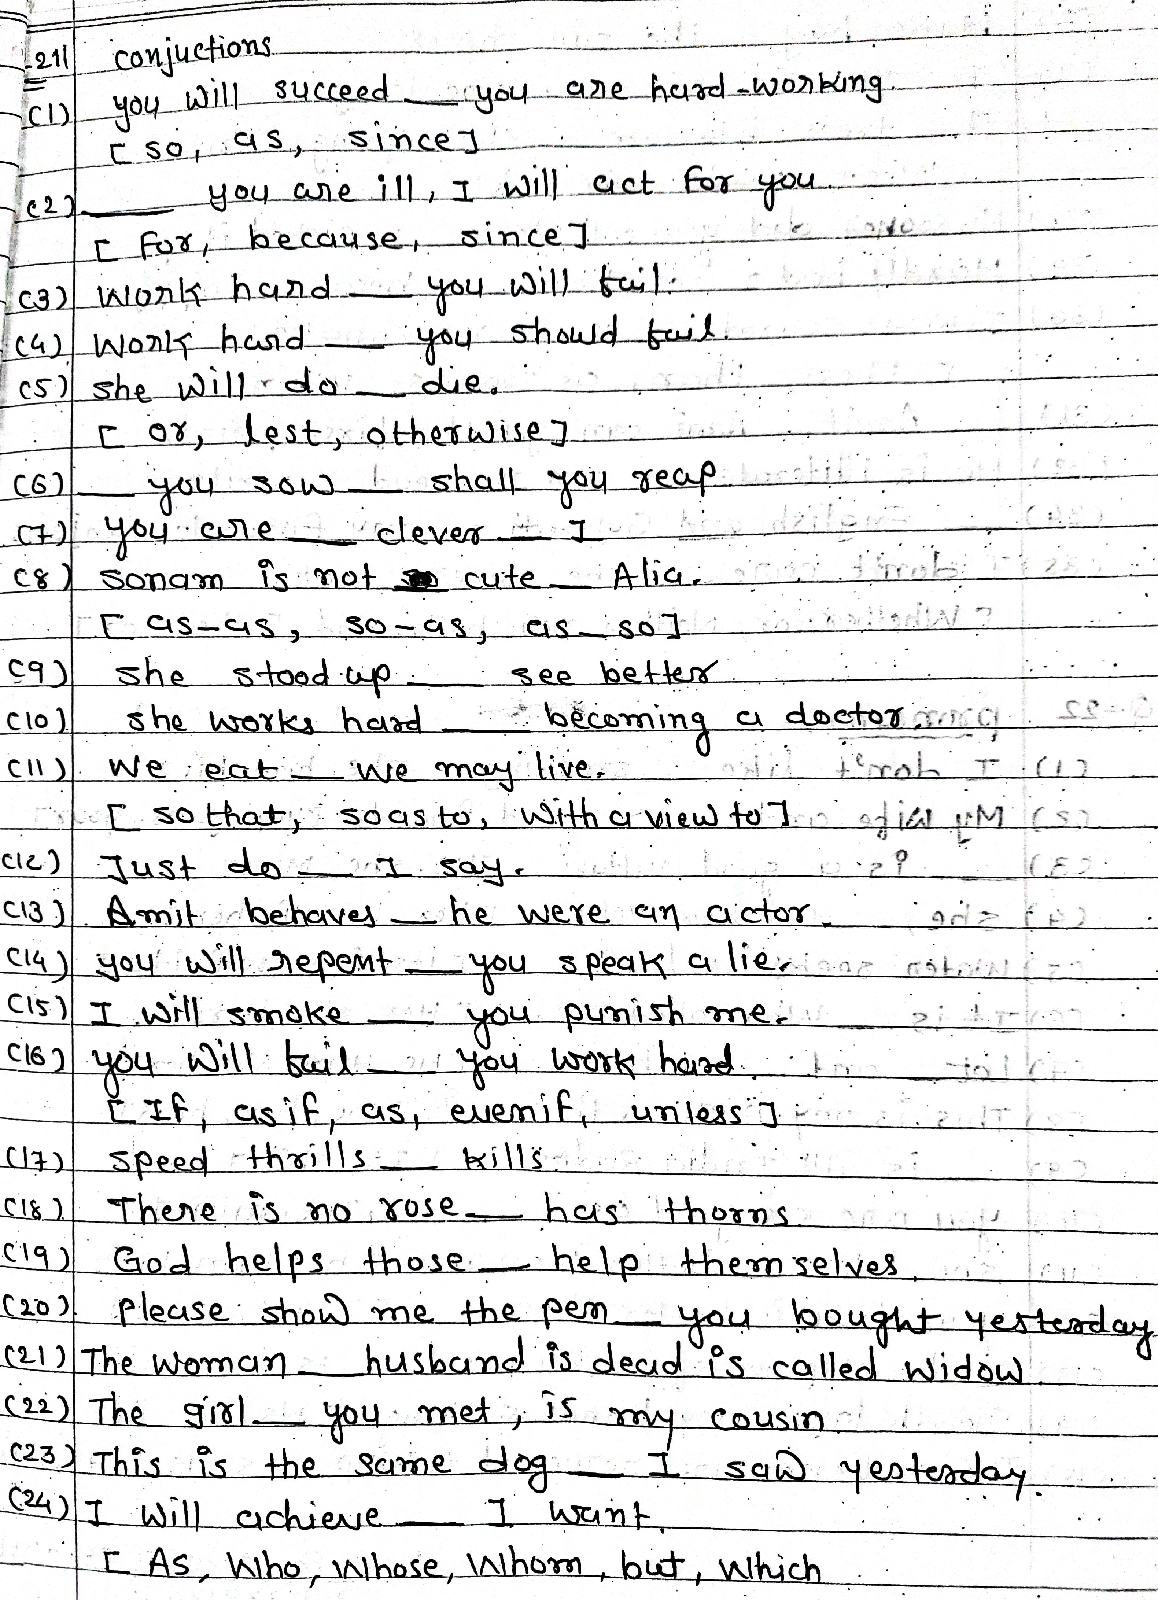 -21) conjuctions
(1) you will succeed __ you are hard-working.
[ so, as, since ]
(2) __ you are ill, I will act for you.
[ For, because, since ]
(3) Work hard __ you will fail.
(4) Work hard __ you should fail.
(5) she will do __ die.
[ or, lest, otherwise ]
(6) __ you sow __ shall you reap
(7) you are __ clever __ I
(8) sonam is not __ cute __ Alia.
[ as-as, so-as, as-so ]
(9) she stood up __ see better
(10) she works hard __ becoming a doctor
(11) We eat __ we may live.
[ so that, so as to, with a view to ]
(12) Just do __ I say.
(13) Amit behaves __ he were an actor.
(14) you will repent __ you speak a lie.
(15) I will smoke __ you punish me.
(16) you will fail __ you work hard.
[ If, as if, as, even if, unless ]
(17) speed thrills __ kills
(18) There is no rose __ has thorns
(19) God helps those __ help themselves.
(20) please show me the pen __ you bought yesterday
(21) The woman __ husband is dead is called widow.
(22) The girl __ you met, is my cousin
(23) This is the same dog __ I saw yesterday.
(24) I will achieve __ I want.
[ As, who, whose, whom, but, which